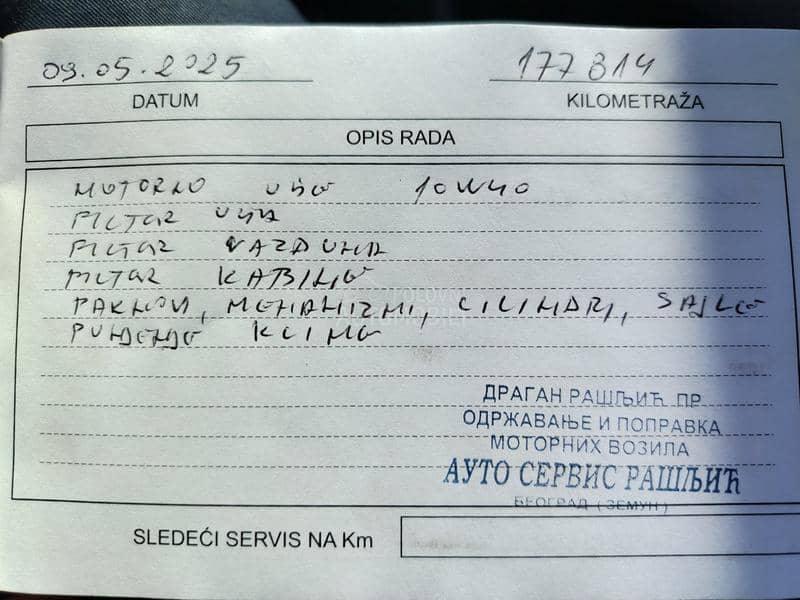 09.05.2025 177 814
DATUM KILOMETRAŽA
OPIS RADA
MOTORNO UЉE 10W40
FILTAR UЉA
FILTAR VAZDUHA
FILTAR KABINE
PAKNOVI, MEHANIZMI, CILINDRI, SAJLE
PUЊEЊE KLIME
ДРАГАН РАШЉИЋ ПР
ОДРЖАВАЊЕ И ПОПРАВКА
МОТОРНИХ ВОЗИЛА
АУТО СЕРВИС РАШЉИЋ
БЕОГРАД (ЗЕМУН)
SLEDEĆI SERVIS NA Km